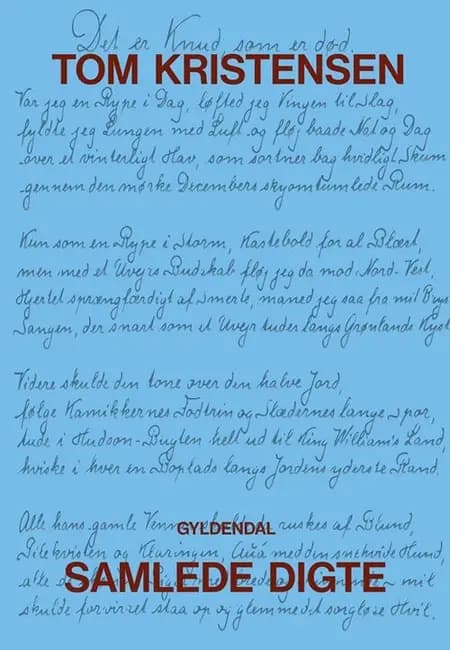 Det er Knud, som er død.
TOM KRISTENSEN
Var jeg en Rype i Dag, løfted jeg Vingen til Slag,
fyldte jeg Lungen med Luft og fløj baade Nat og Dag
over et vinterligt Hav, som sortner bag hvidligt Skum
gennem den mørke Decembers skyomtumlede Rum.
Kun som en Rype i Storm, Kastebold for al Blæst,
men med et Uvejrs Budskab fløj jeg da mod Nord-Vest,
Hjertet sprængfærdigt af Smerte, maned jeg saa fra mit Brys
Sangen, der snart som et Uvejr tuder langs Grønlands Kyst
Videre skulde den tone over den halve Jord,
følge Kamikkernes Fodtrin og Slædernes lange Spor,
tude i Hudson-Bugten helt ud til King William's Land,
hviske i hver en Boplads langs Jordens yderste Rand.
Alle hans gamle Venner ruskes af Blund,
GYLDENDAL
Pilekvisten og med den snehvide Hund,
alle
SAMLEDE DIGTE
skulde forvirret staa op og glemme det sorgløse Hvil.